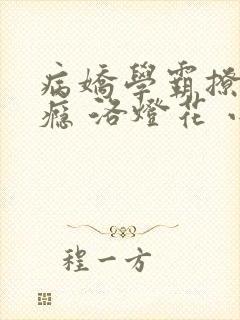 病嬌學霸撩
癮 洛燈花
程一方